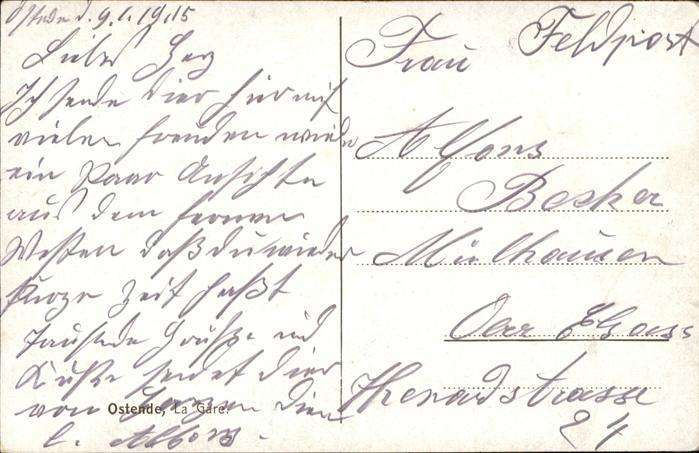 Ostende d. 9.1.1915
Liebes Herz
Ich sende dier hiermit
vielen freuden wieder
ein Paar Ansichten
aus dem fernen
Westen daß du wieder
kurze Zeit hast
Tausende Grüße und
Küße sendet dier
von Herzen dein
l. Alfons.
Ostende, La Gare.
Feldpost
Frau
Alfons
Becker
Mülhausen
Ober Elsass
strasse
24